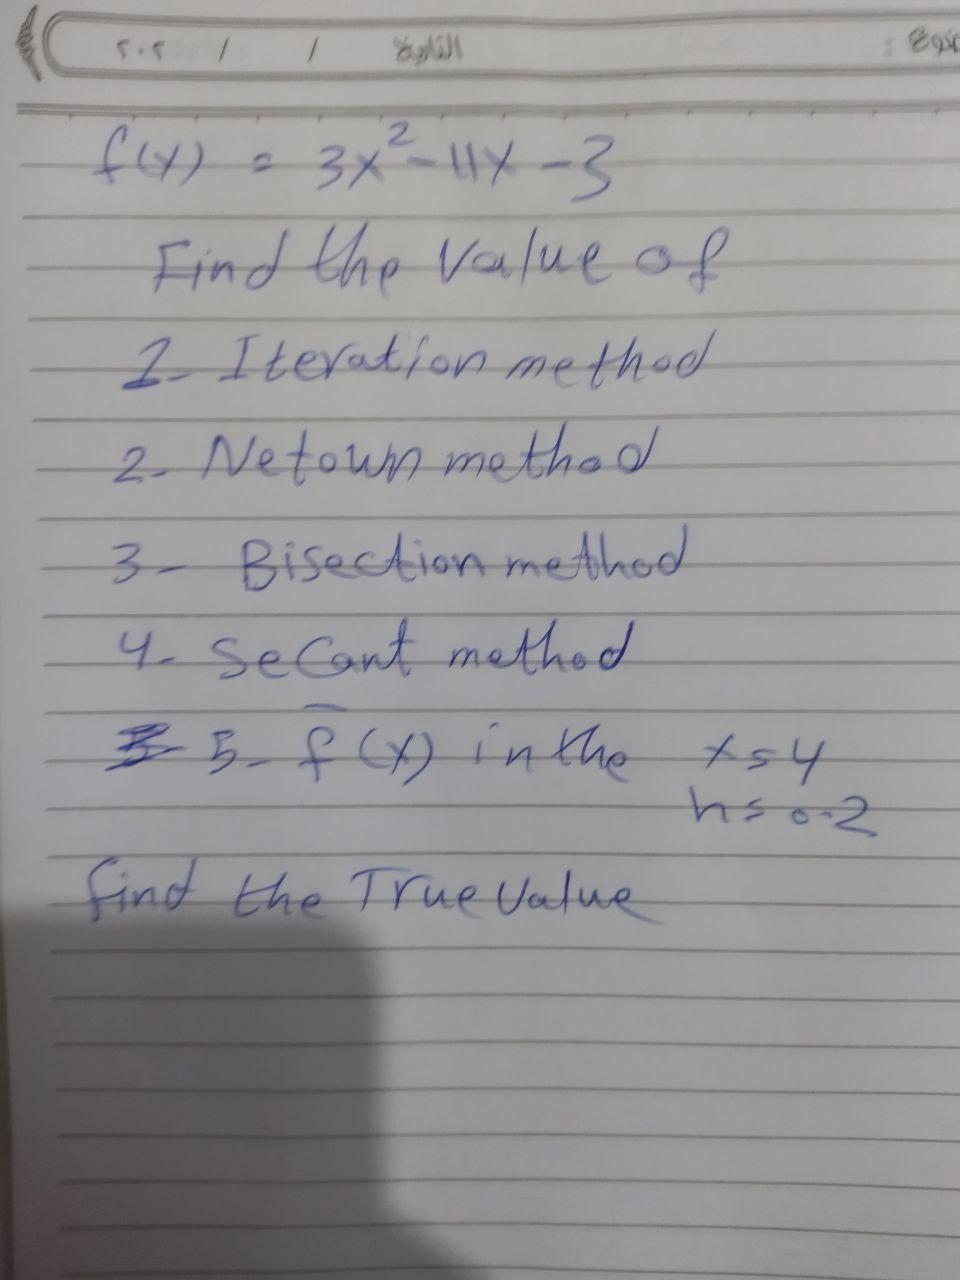 ٢٠٢ / / التاريخ
f(x) = 3x²-11x-3
Find the Value of
1- Iteration method
2- Netown method
3- Bisection method
4- Secant method
5- f̄(x) in the x=4
h=0.2
find the True Value